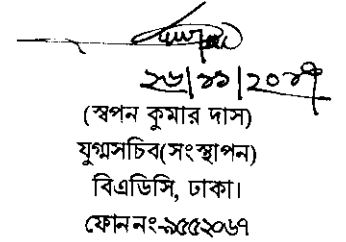 ২৬|১১|২০১৭
(স্বপন কুমার দাস)
যুগ্মসচিব(সংস্থাপন)
বিএডিসি, ঢাকা।
ফোন নং-৯৫৫২০৬৭